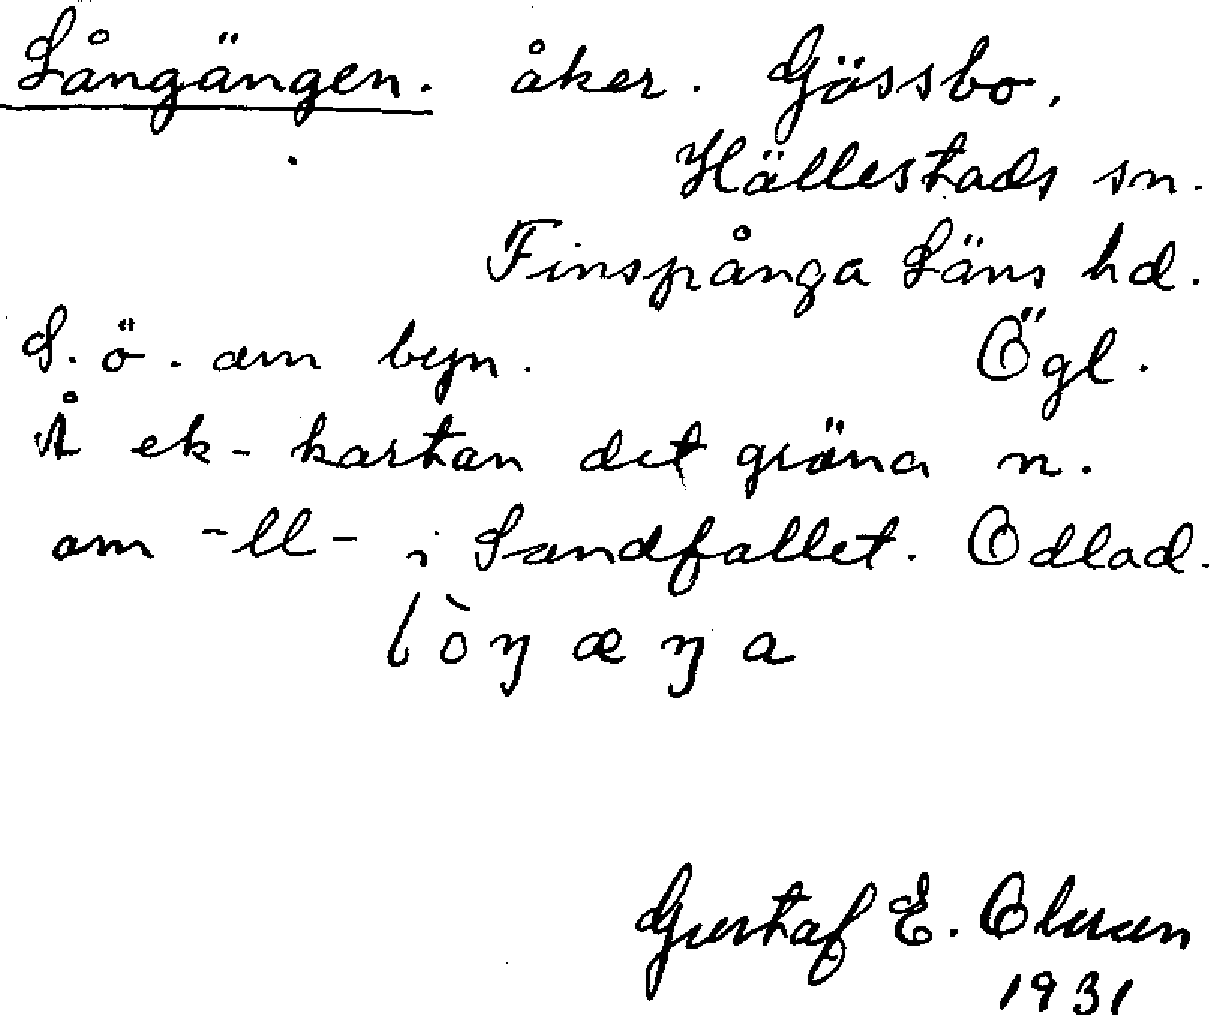 Långängen. åker. Gössbo.
Hällestads sn.
Finspånga Läns hd.
S. ö. om byn. Ögl.
Å ek-kartan det gröna n.
om -ll- i Sandfallet. Odlad.
lòŋæŋa
Gustaf E. Olsson
1931